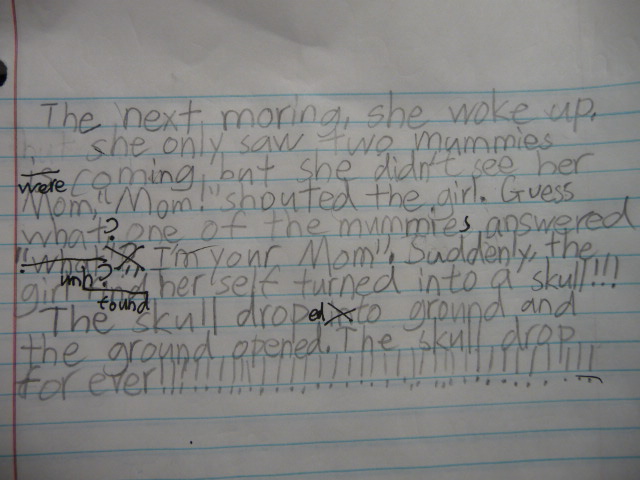 The next moring, she woke up.
but she only saw two mummies
were coming, but she didn't see her
Mom, "Mom!" shouted the girl. Guess
what? one of the mummies answered
I'm your Mom". Suddenly, the
girl found her self turned into a skull!!!
The skull droped to ground and
the ground opened. The skull drop
for ever!!!!!!!!!!!!!!!!!!!!!!!!!!!!